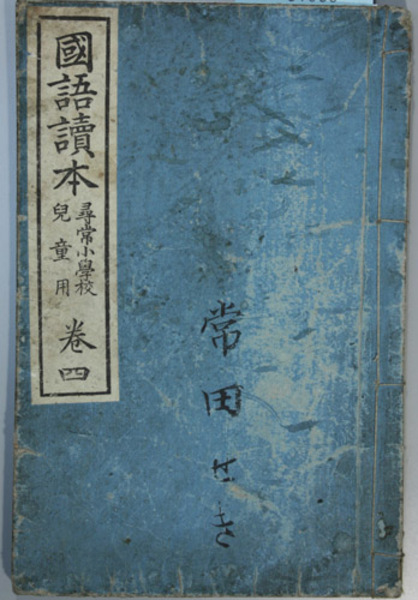 國語讀本
尋常小學校
兒童用
卷四
常田せき